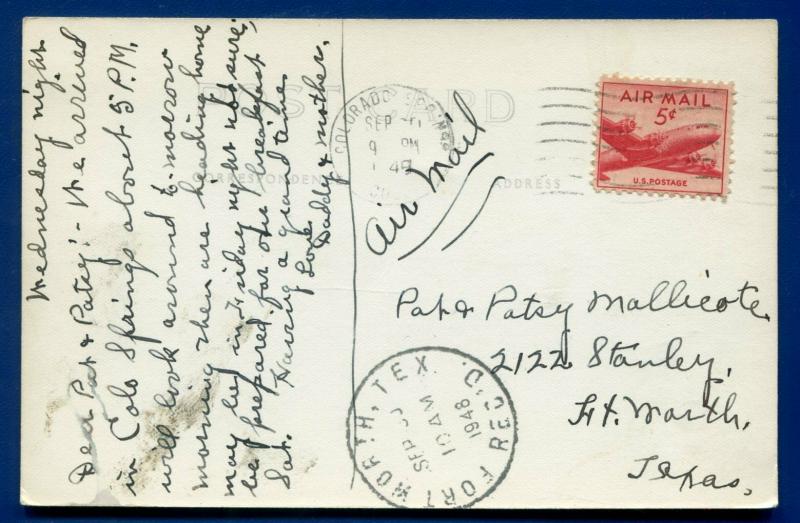 Wednesday night
Dear Pat & Patsy:- We arrived
in Colo Springs about 5 P.M.
will look around to-morrow
morning then are heading home
may be in Friday night not sure,
be prepared for one breakfast
Sat. Having a grand time
Love
Daddy & Mother.
POST CARD
CORRESPONDENCE
ADDRESS
COLORADO SPRINGS
SEP
9 PM
Air Mail
AIR MAIL
5¢
U.S. POSTAGE
Pat & Patsy Mallicote
2122 Stanley,
Ft. Worth,
Texas,
FORT WORTH, TEX. REC'D.
SEP
10 AM
1948